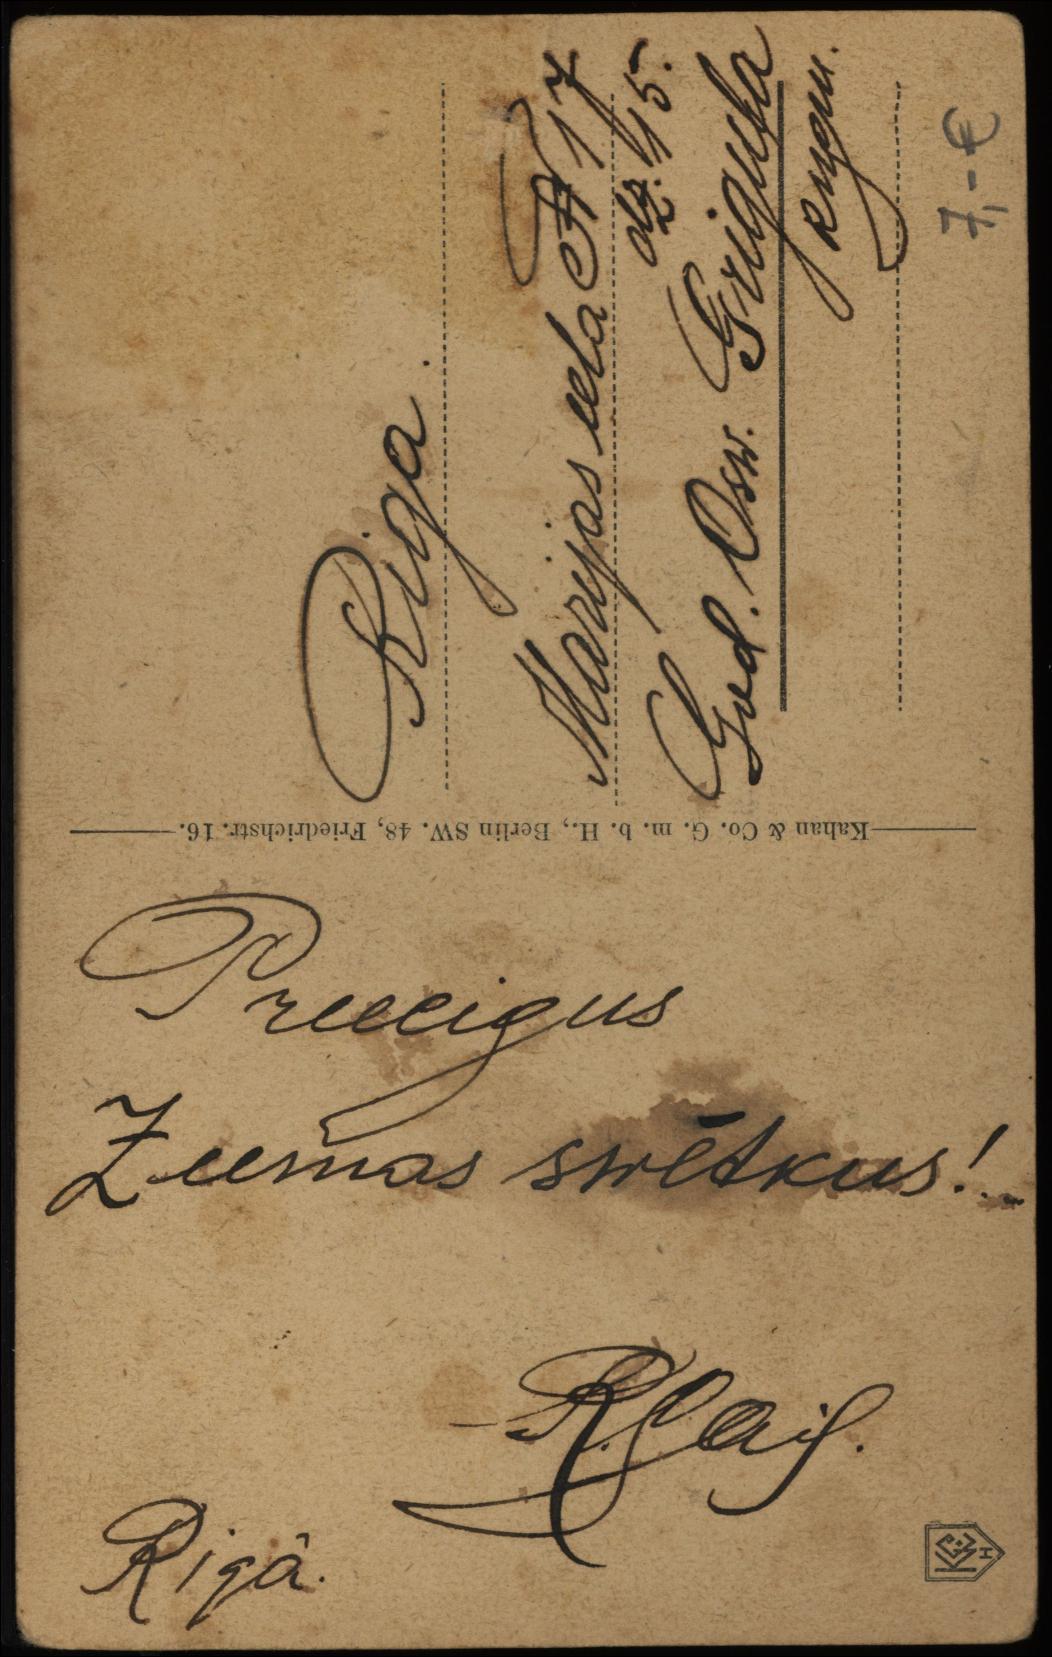 Riga.
Marijas iela № 17
dz. 15.
God. Osw. Grigucka
kungu.
7,- €
Kahan & Co. G. m. b. H., Berlin SW. 48, Friedrichstr. 16.
Preecigus
Zeemas swētkus!
Rigâ.